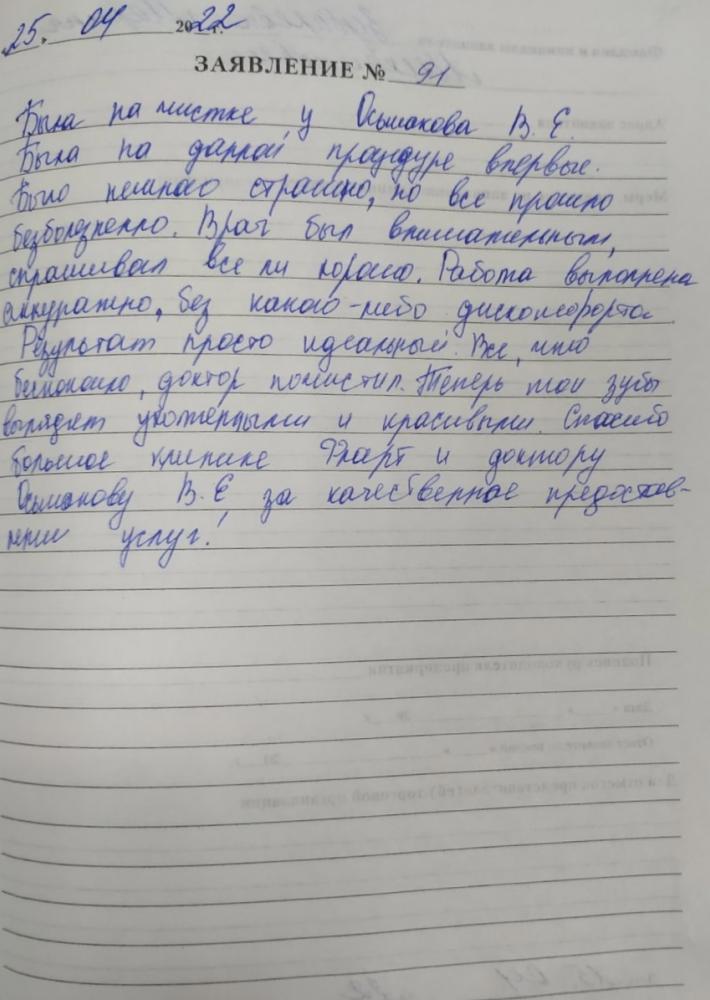 25. 04 2022 г.
ЗАЯВЛЕНИЕ № 91
Была на чистке у Осьмакова В. Е.
Была на данной процедуре впервые.
Было немного страшно, но все прошло
безболезненно. Врач был внимательным,
спрашивал все ли хорошо. Работа выполнена
аккуратно, без какого-либо дискомфорта.
Результат просто идеальный. Все, что
беспокоило, доктор почистил. Теперь мои зубы
выглядят ухоженными и красивыми. Спасибо
большое клинике и доктору
Осьмакову В. Е. за качественное предостав-
ление услуг!